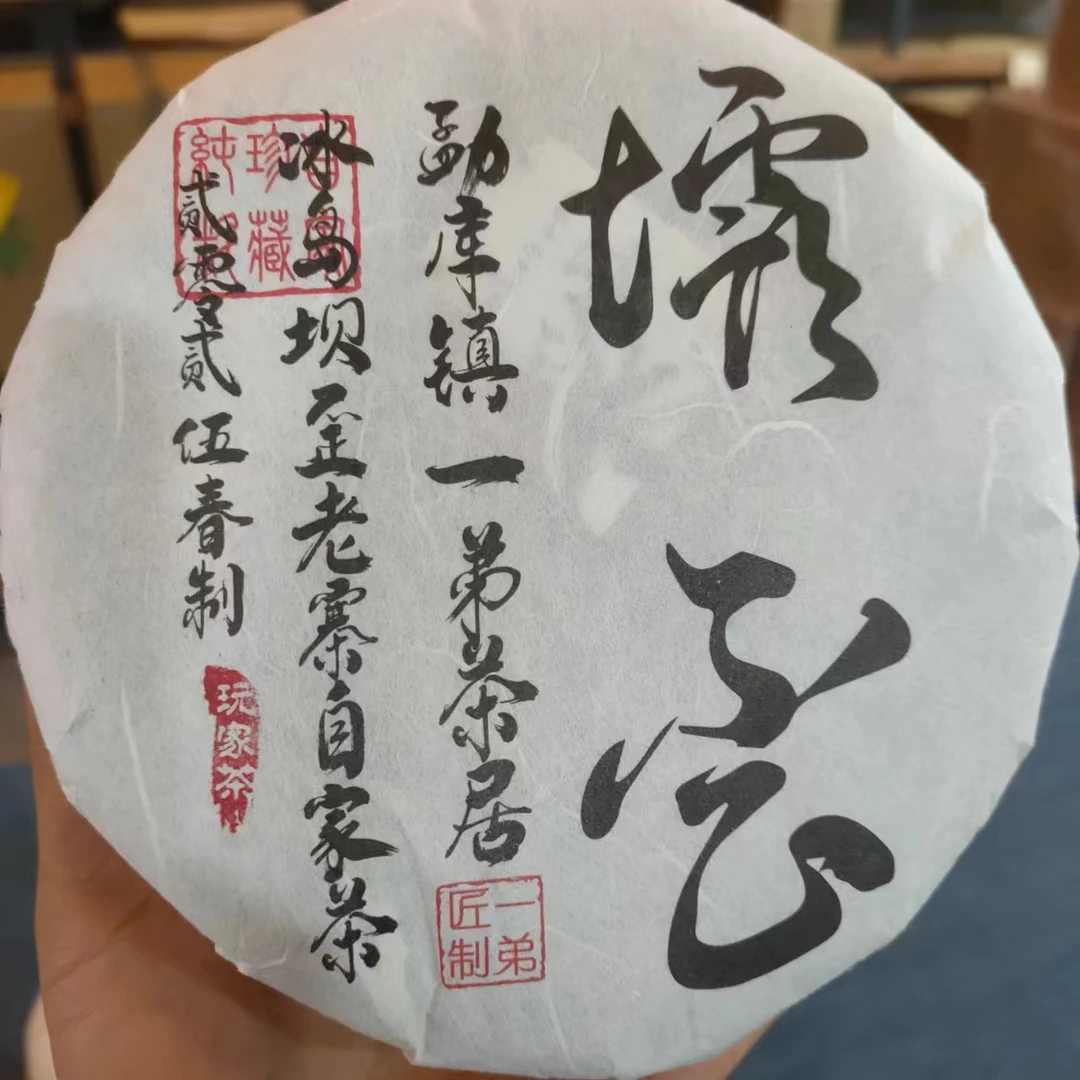 壩歪
勐库镇一弟茶居
一弟匠制
冰岛坝歪老寨自家茶
珍藏
純
貳零貳伍春制
玩家茶